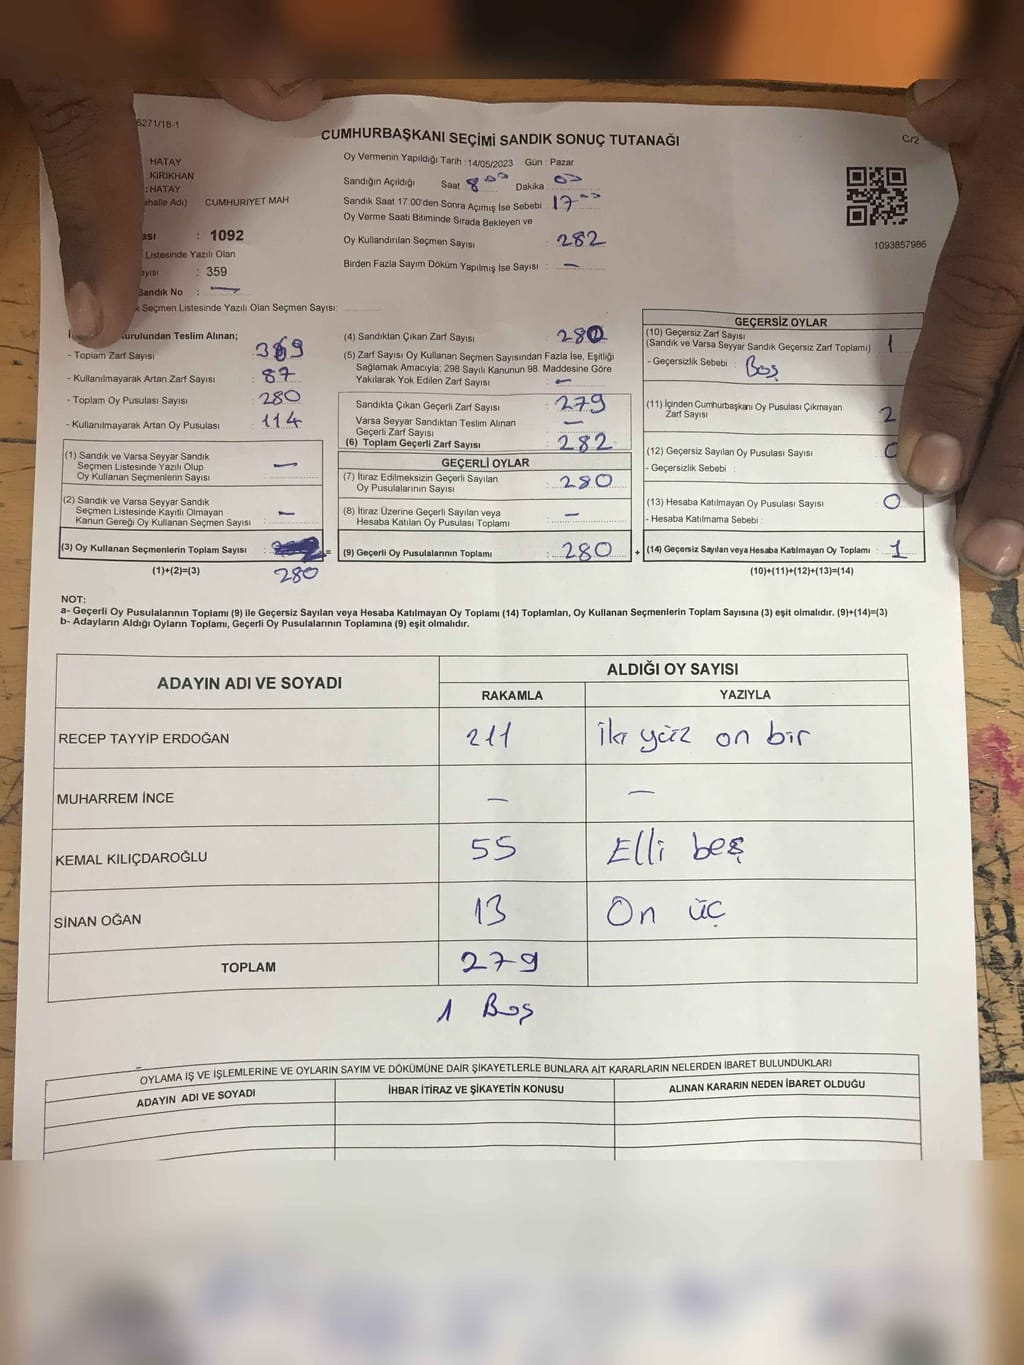 6271/18-1
CUMHURBAŞKANI SEÇİMİ SANDIK SONUÇ TUTANAĞI
C/2
HATAY
KIRIKHAN
:HATAY
ahalle Adı) CUMHURİYET MAH
ası : 1092
Listesinde Yazılı Olan
ayısı : 359
Sandık No : —
k Seçmen Listesinde Yazılı Olan Seçmen Sayısı:
Oy Vermenin Yapıldığı Tarih :14/05/2023 Gün : Pazar
Sandığın Açıldığı Saat 8 00 Dakika 00
Sandık Saat 17.00'den Sonra Açımış İse Sebebi 17
Oy Verme Saati Bitiminde Sırada Bekleyen ve
Oy Kullandırılan Seçmen Sayısı : 282
Birden Fazla Sayım Döküm Yapılmış İse Sayısı : —
1093857986
urulundan Teslim Alınan;
- Toplam Zarf Sayısı : 369
- Kullanılmayarak Artan Zarf Sayısı : 87
- Toplam Oy Pusulası Sayısı : 280
- Kullanılmayarak Artan Oy Pusulası : 114
(1) Sandık ve Varsa Seyyar Sandık
Seçmen Listesinde Yazılı Olup
Oy Kullanan Seçmenlerin Sayısı : —
(2) Sandık ve Varsa Seyyar Sandık
Seçmen Listesinde Kayıtlı Olmayan
Kanun Gereği Oy Kullanan Seçmen Sayısı : —
(3) Oy Kullanan Seçmenlerin Toplam Sayısı : =
(1)+(2)=(3) 280
(4) Sandıktan Çıkan Zarf Sayısı : 280
(5) Zarf Sayısı Oy Kullanan Seçmen Sayısından Fazla İse, Eşitliği
Sağlamak Amacıyla; 298 Sayılı Kanunun 98. Maddesine Göre
Yakılarak Yok Edilen Zarf Sayısı : —
Sandıkta Çıkan Geçerli Zarf Sayısı : 279
Varsa Seyyar Sandıktan Teslim Alınan
Geçerli Zarf Sayısı : —
(6) Toplam Geçerli Zarf Sayısı : 282
GEÇERLİ OYLAR
(7) İtiraz Edilmeksizin Geçerli Sayılan
Oy Pusulalarının Sayısı : 280
(8) İtiraz Üzerine Geçerli Sayılan veya
Hesaba Katılan Oy Pusulası Toplamı : —
(9) Geçerli Oy Pusulalarının Toplamı : 280 +
GEÇERSİZ OYLAR
(10) Geçersiz Zarf Sayısı
(Sandık ve Varsa Seyyar Sandık Geçersiz Zarf Toplamı) : 1
- Geçersizlik Sebebi : Boş
(11) İçinden Cumhurbaşkanı Oy Pusulası Çıkmayan
Zarf Sayısı : 2
(12) Geçersiz Sayılan Oy Pusulası Sayısı : 0
- Geçersizlik Sebebi :
(13) Hesaba Katılmayan Oy Pusulası Sayısı : 0
- Hesaba Katılmama Sebebi :
(14) Geçersiz Sayılan veya Hesaba Katılmayan Oy Toplamı : 1
(10)+(11)+(12)+(13)=(14)
NOT:
a- Geçerli Oy Pusulalarının Toplamı (9) ile Geçersiz Sayılan veya Hesaba Katılmayan Oy Toplamı (14) Toplamları, Oy Kullanan Seçmenlerin Toplam Sayısına (3) eşit olmalıdır. (9)+(14)=(3)
b- Adayların Aldığı Oyların Toplamı, Geçerli Oy Pusulalarının Toplamına (9) eşit olmalıdır.
ADAYIN ADI VE SOYADI ALDIĞI OY SAYISI
RAKAMLA YAZIYLA
RECEP TAYYİP ERDOĞAN 211 İki yüz on bir
MUHARREM İNCE — —
KEMAL KILIÇDAROĞLU 55 Elli beş
SİNAN OĞAN 13 On üç
TOPLAM 279
1 Boş
OYLAMA İŞ VE İŞLEMLERİNE VE OYLARIN SAYIM VE DÖKÜMÜNE DAİR ŞİKAYETLERLE BUNLARA AİT KARARLARIN NELERDEN İBARET BULUNDUKLARI
ADAYIN ADI VE SOYADI İHBAR İTİRAZ VE ŞİKAYETİN KONUSU ALINAN KARARIN NEDEN İBARET OLDUĞU